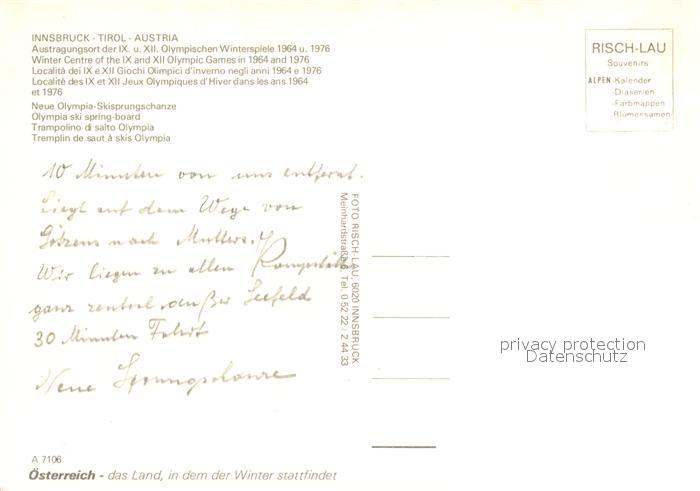 INNSBRUCK - TIROL - AUSTRIA
Austragungsort der IX. u. XII. Olympischen Winterspiele 1964 u. 1976
Winter Centre of the IX and XII Olympic Games in 1964 and 1976
Località dei IX e XII Giochi Olimpici d'inverno negli anni 1964 e 1976
Localité des IX et XII Jeux Olympiques d'Hiver dans les ans 1964
et 1976
Neue Olympia-Skisprungschanze
Olympia ski spring-board
Trampolino di salto Olympia
Tremplin de saut à skis Olympia
RISCH-LAU
Souvenirs
ALPEN-Kalender
-Diaserien
-Farbmappen
-Blumensamen
10 Minuten von uns entfernt.
Liegt auf dem Wege von
Götzens nach Mutters.
Wir liegen zu allen
ganz zentral außer Seefeld
30 Minuten Fahrt
Neue Sprungschanze
FOTO RISCH-LAU, 6020 INNSBRUCK
Meinhardstraße Tel. 0 52 22 / 2 44 33
privacy protection
Datenschutz
A 7106
Österreich - das Land, in dem der Winter stattfindet